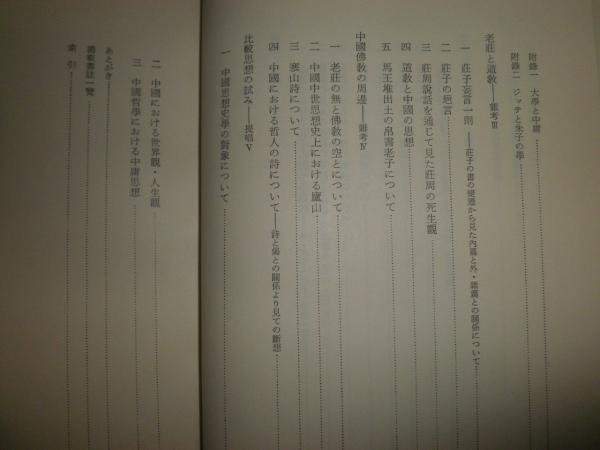 附錄一 大學と中庸
附錄二 ジッテと朱子の學
老莊と道敎——雜考Ⅲ
一 莊子妄言一則——莊子の書の變遷から見た內篇と外・雜篇との關係について
二 莊子の卮言
三 莊周說話を通じて見た莊周の死生觀
四 道敎と中國の思想
五 馬王堆出土の帛書老子について
中國佛敎の周邊——雜考Ⅳ
一 老莊の無と佛敎の空とについて
二 中國中世思想史上における廬山
三 寒山詩について
四 中國における哲人の詩について——詩と偈との關係より見ての斷想
比較思想の試み——提唱Ⅴ
一 中國思想史學の對象について
二 中國における世界觀・人生觀
三 中國哲學における中庸思想
あとがき
揭載書誌一覽
索引